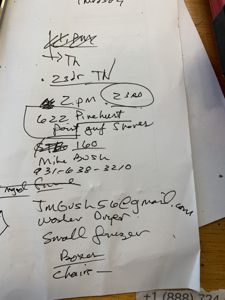 → Th
. 23dr. TN
2 pm 2300
622 Pinehurst
Point Gulf Shores
160
Mike Bush
931-638-3210
Jmbush56@gmail.com
Washer Dryer
Small freezer
Boxes
Chairs —
+1 (888) 724